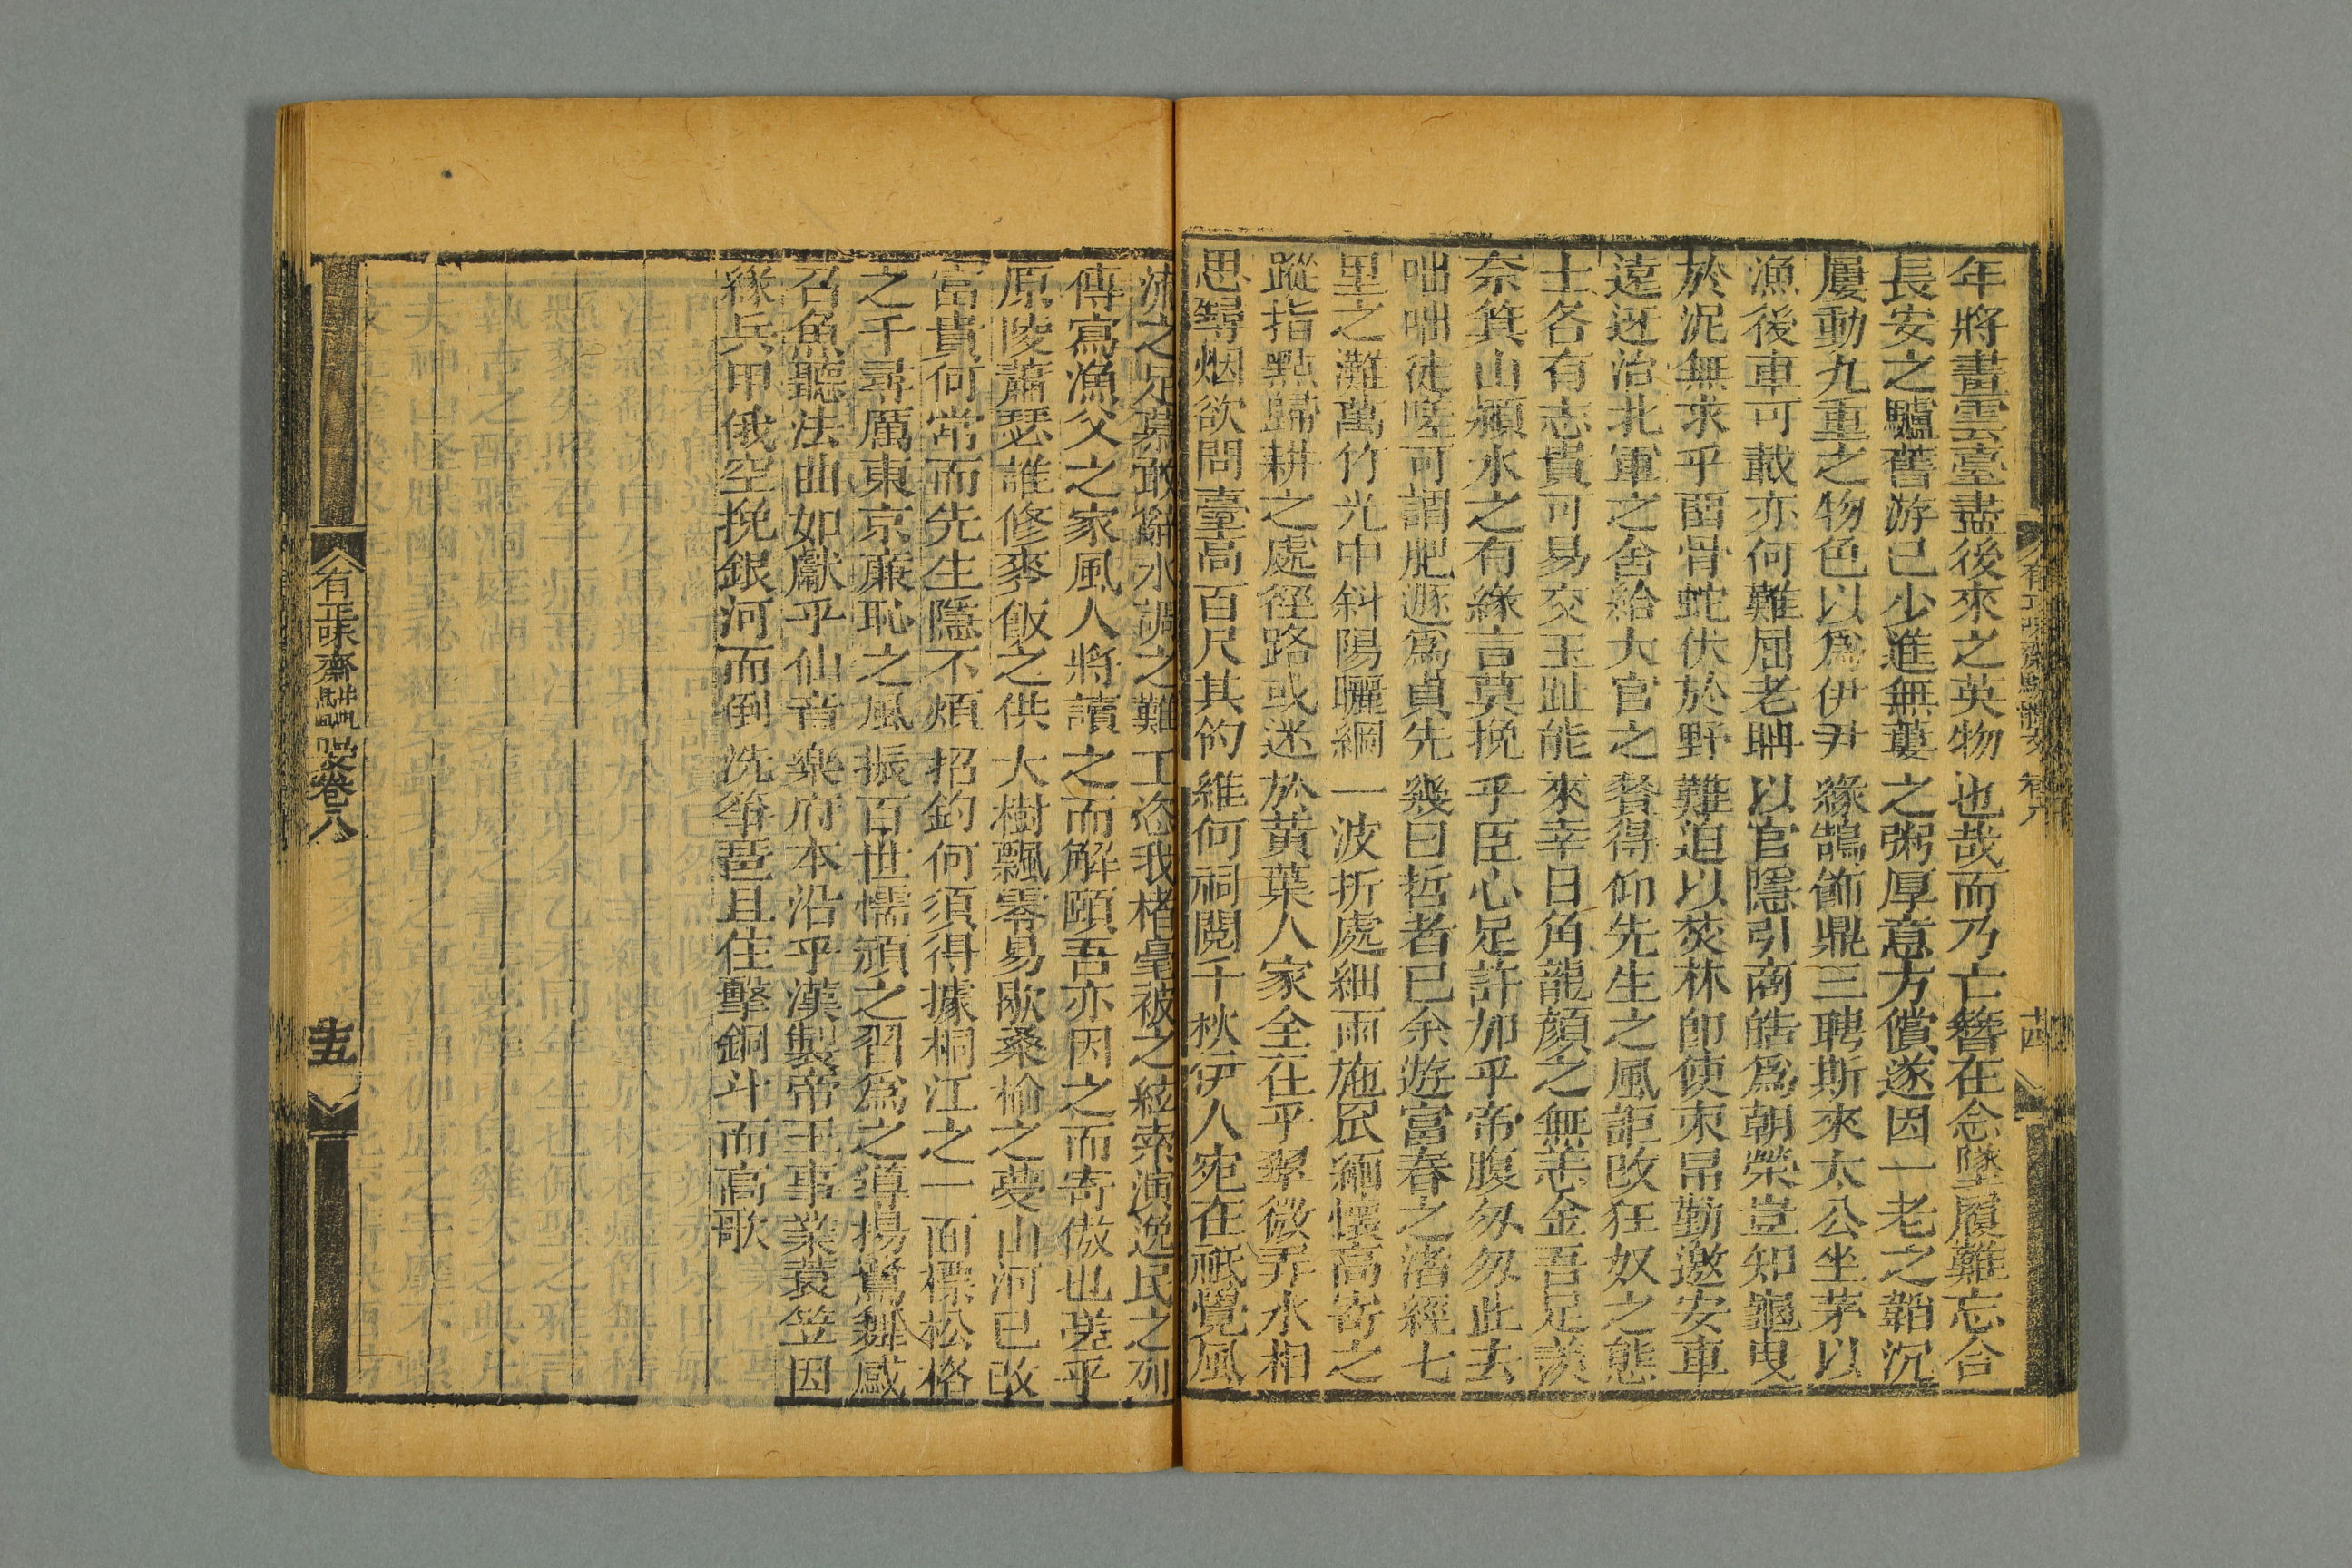 年將畫雲臺盡後來之英物也哉而乃亡簪在念墜履難忘合
長安之驢舊游已少進無蔞之粥厚意方償遂因一老之韜沉
屢動九重之物色以爲伊尹緣鵠飾鼎三聘斯來太公坐茅以
漁後車可載亦何難屈老聃以官隱引商皓爲朝榮豈知龜曳
於泥無求乎留骨蛇伏於野難迫以焚林卽使束帛勤邀安車
遠迓治北軍之舍給大官之餐得仰先生之風詎改狂奴之態
士各有志貴可易交玉趾能來幸日角龍顏之無恙金吾足羨
奈箕山潁水之有緣言莫挽乎臣心足許加乎帝腹匆匆此去
咄咄徒嗟可謂肥遯爲貞先幾曰哲者已余遊富春之渚經七
里之灘萬竹光中斜陽曬網一波折處細雨施罛緬懷高寄之
蹤指點歸耕之處徑路或迷於黃葉人家全在乎翠微弄水相
思尋烟欲問臺高百尺其釣維何祠閱千秋伊人宛在祗覺風
流之足慕敢辭水調之難工恣我楮毫被之絃索演逸民之列
傳寫漁父之家風人將讀之而解頤吾亦因之而寄傲也嗟乎
原陵蕭瑟誰修麥飯之供大樹飄零易歇桑榆之夢山河已改
富貴何常而先生隱不煩招釣何須得據桐江之一面標松格
之千尋厲東京廉恥之風振百世懦頑之習爲之導揚鷺舞感
召魚聽法曲如獻乎仙音樂府本沿乎漢製帝王事業蓑笠因
緣兵甲俄空挽銀河而倒洗箏琶且住擊銅斗而高歌
有正味齋駢體文卷八
十五